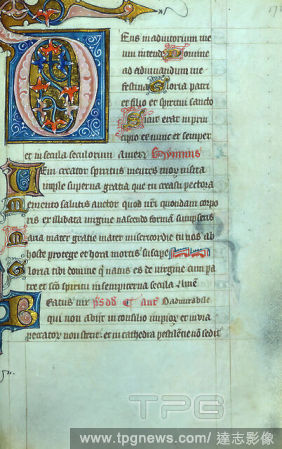 Deus in adiutorium me
um intende Domine
ad adiuvandum me
festina Gloria patri
et filio et spiritui sancto
Sicut erat in prin
cipio et nunc et semper
et in secula seculorum amen Hymnus
Veni creator spiritus mentes tuorum visita
imple superna gratia que tu creasti pectora
Memento salutis auctor quod nostri quondam corpo
ris ex illibata virgine nascendo formam sumpseris
Maria mater gratie mater misericordie tu nos ab
hoste protege et hora mortis suscipe
Gloria tibi domine qui natus es de virgine cum pa
tre et sancto spiritu in sempiterna secula Amen
Beatus vir
qui non abiit in consilio impiorum et in via
peccatorum non stetit et in cathedra pestilentie non sedit
TPG
www.tpgnews.com/ 達志影像